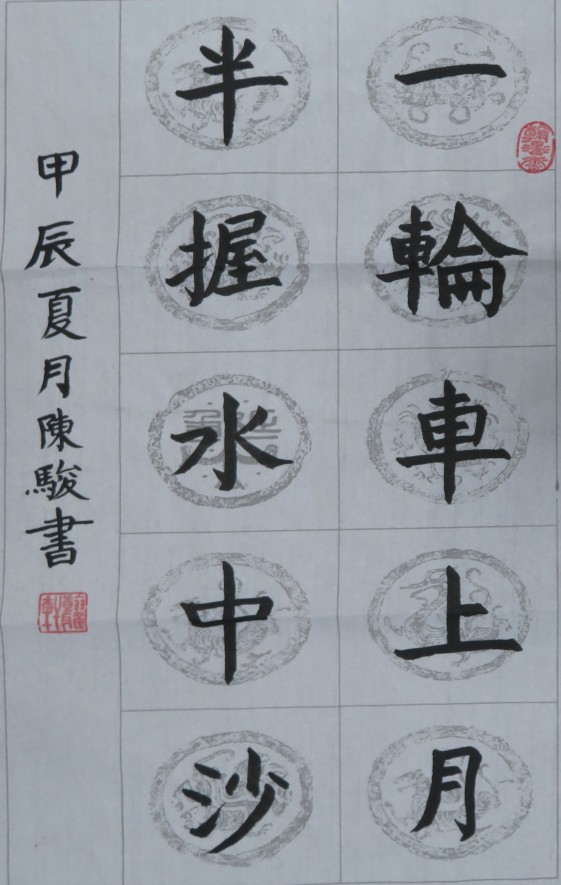 一輪車上月
半握水中沙
甲辰夏月陳駿書